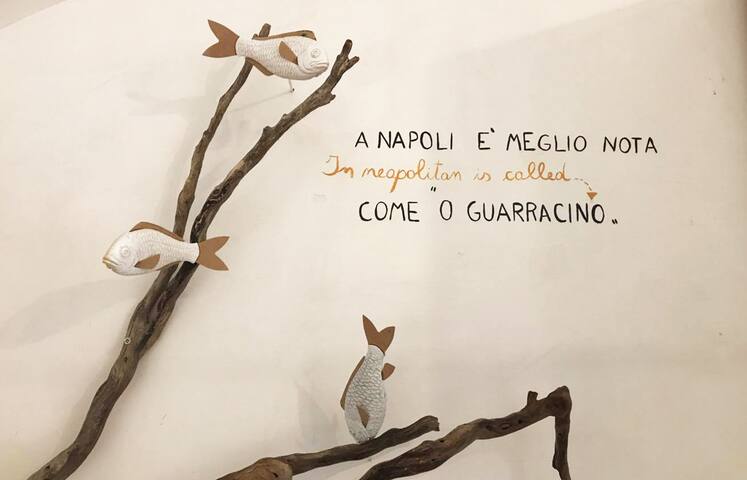 A NAPOLI E' MEGLIO NOTA
In neapolitan is called...
COME "O GUARRACINO"